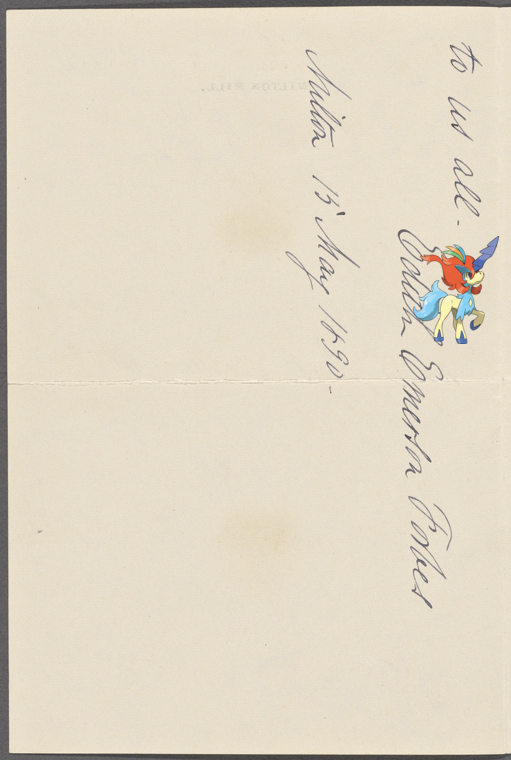 to us all-
Edith Emerson Forbes
Milton 15 May 1890-
MILTON HILL.